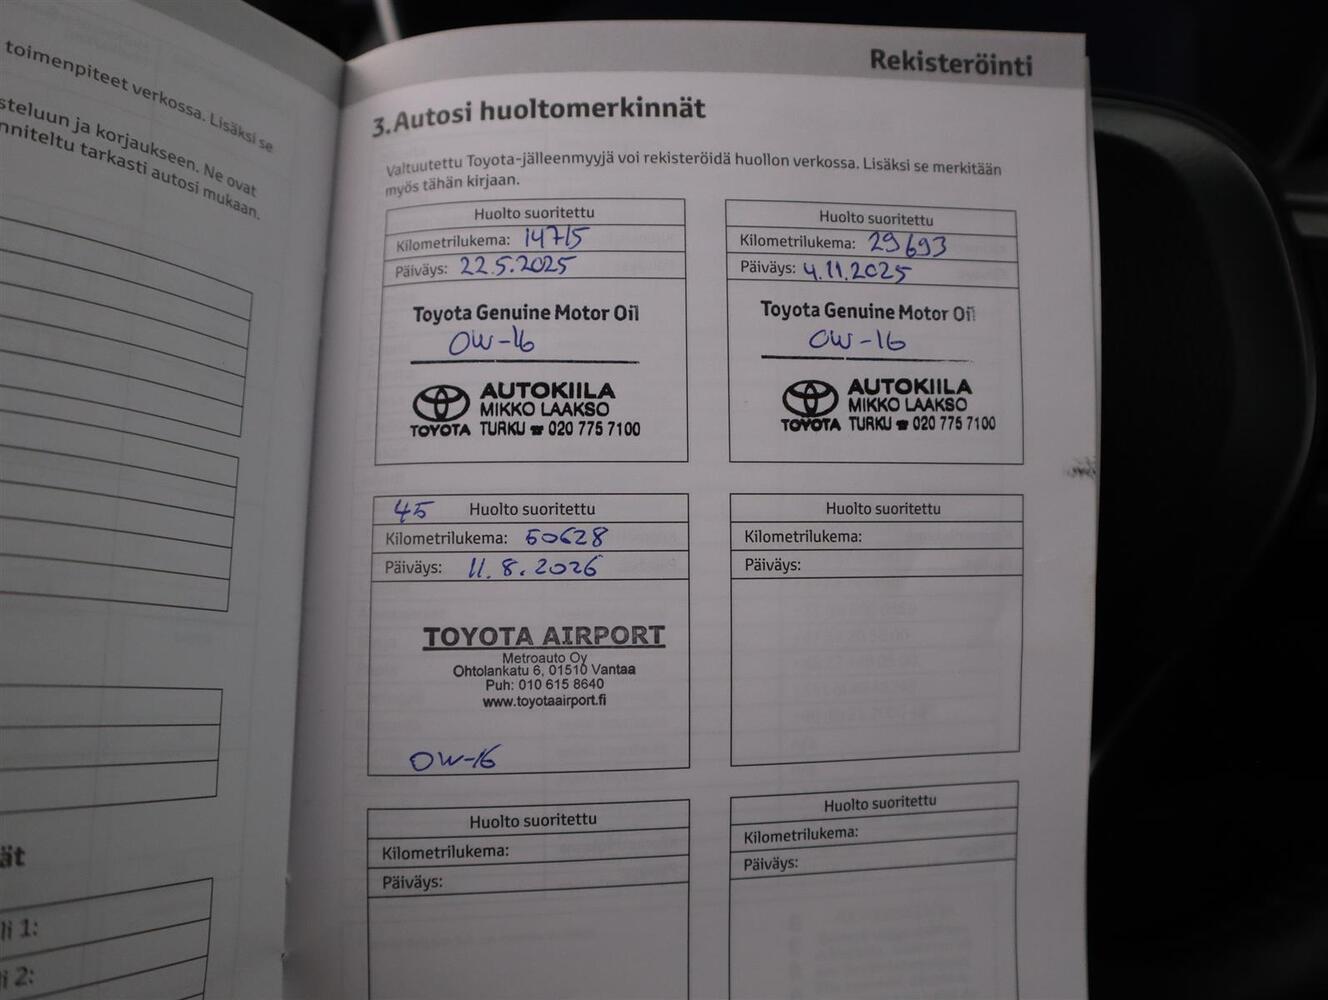 toimenpiteet verkossa. Lisäksi se
steluun ja korjaukseen. Ne ovat
nniteltu tarkasti autosi mukaan.
ät
li 1:
li 2:
Rekisteröinti
3. Autosi huoltomerkinnät
Valtuutettu Toyota-jälleenmyyjä voi rekisteröidä huollon verkossa. Lisäksi se merkitään
myös tähän kirjaan.
Huolto suoritettu
Kilometrilukema: 14715
Päiväys: 22.5.2025
Toyota Genuine Motor Oil
0W-16
AUTOKIILA
MIKKO LAAKSO
TOYOTA TURKU ☎ 020 775 7100
Huolto suoritettu
Kilometrilukema: 29693
Päiväys: 4.11.2025
Toyota Genuine Motor Oil
0W-16
AUTOKIILA
MIKKO LAAKSO
TOYOTA TURKU ☎ 020 775 7100
45 Huolto suoritettu
Kilometrilukema: 50628
Päiväys: 11.8.2026
TOYOTA AIRPORT
Metroauto Oy
Ohtolankatu 6, 01510 Vantaa
Puh: 010 615 8640
www.toyotaairport.fi
0W-16
Huolto suoritettu
Kilometrilukema:
Päiväys:
Huolto suoritettu
Kilometrilukema:
Päiväys:
Huolto suoritettu
Kilometrilukema:
Päiväys: